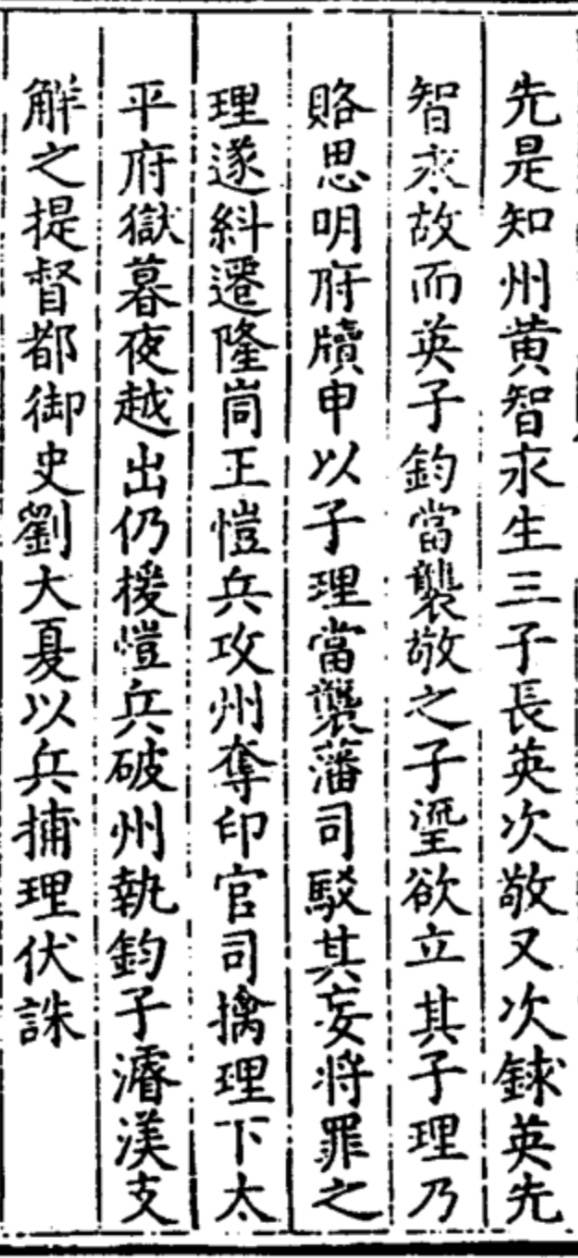 先是知州黄智求生三子長英次敬又次銶英先
智求故而英子鈞當襲敬之子瀅欲立其子理乃
賂思明府牘申以子理當襲藩司駁其妄將罪之
理遂糾遷隆峝王愷兵攻州奪印官司擒理下太
平府獄暮夜越出仍援愷兵破州執鈞子濬渼支
解之提督都御史劉大夏以兵捕理伏誅